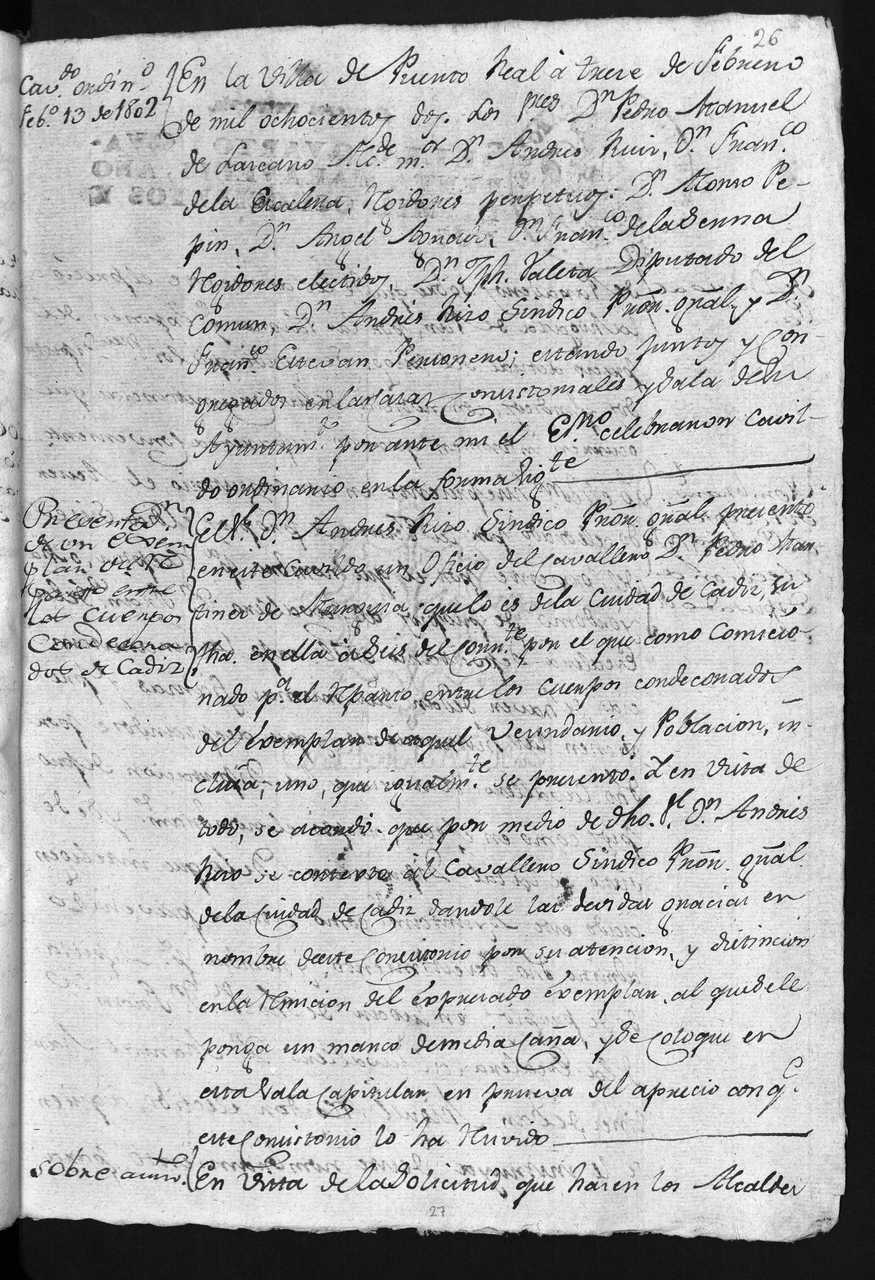 26
Cav.do ordin.o
Feb.o 13 de 1802
En la Villa de Puerto Real à trece de Febrero
de mil ochocientos dos. Los pres D.n Pedro Manuel
de Larcano Alc.de m.or D.n Andres Ruiz, D.n Fran.co
dela Escalera, Rexidores perpetuos: D.n Alonso Pe-
pin, D.n Angel D.n Fran.co dela Senna
Rexidores electivos, D.n Jph. Valeta Diputado del
Comun, D.n Andres Riso Sindico Prõn. gñal, y D.n
Fran.co Estevan Personero; estando juntos y con-
gregados en las casas Consistoriales y Sala de su
Ayuntam.to por ante mi el Es.no celebraron Cavil-
do ordinario en la forma sig.te
Presentaz.n
de un Exem
plar del
entre
los Cuerpos
Condecora
dos de Cadiz
El S.r D.n Andres Riso Sindico Prõn. gñal presentó
en este Cavildo un Oficio del Cavallero D.n Pedro Mar-
tinez de Murguia, que lo es dela Ciudad de Cadiz, su
fha. en ella à Seis del Corr.te por el que como Comicio
nado p.a el Rparto entre los Cuerpos condecorados
del Exemplar de aquel Vecindario, y Poblacion, in-
cluia, uno, que igualm.te se presentó. Y en vista de
todo, se acordò que por medio de dho. S.r D.n Andrés
Riso se contexte àl Cavallero Sindico Prõn. gñal.
dela Ciudad de Cadiz dandole las devidas gracias en
nombre de este Concistorio por su atencion, y distincion
en la Rmicion del expresado exemplar, al que se le
ponga un marco de media Caña, y Se Coloque en
esta Sala Capitular en prueva del aprecio con q.e
este Concistorio lo ha Rcivido
sobre
En Vista de la Solicitud que hacen los Alcaldes
27